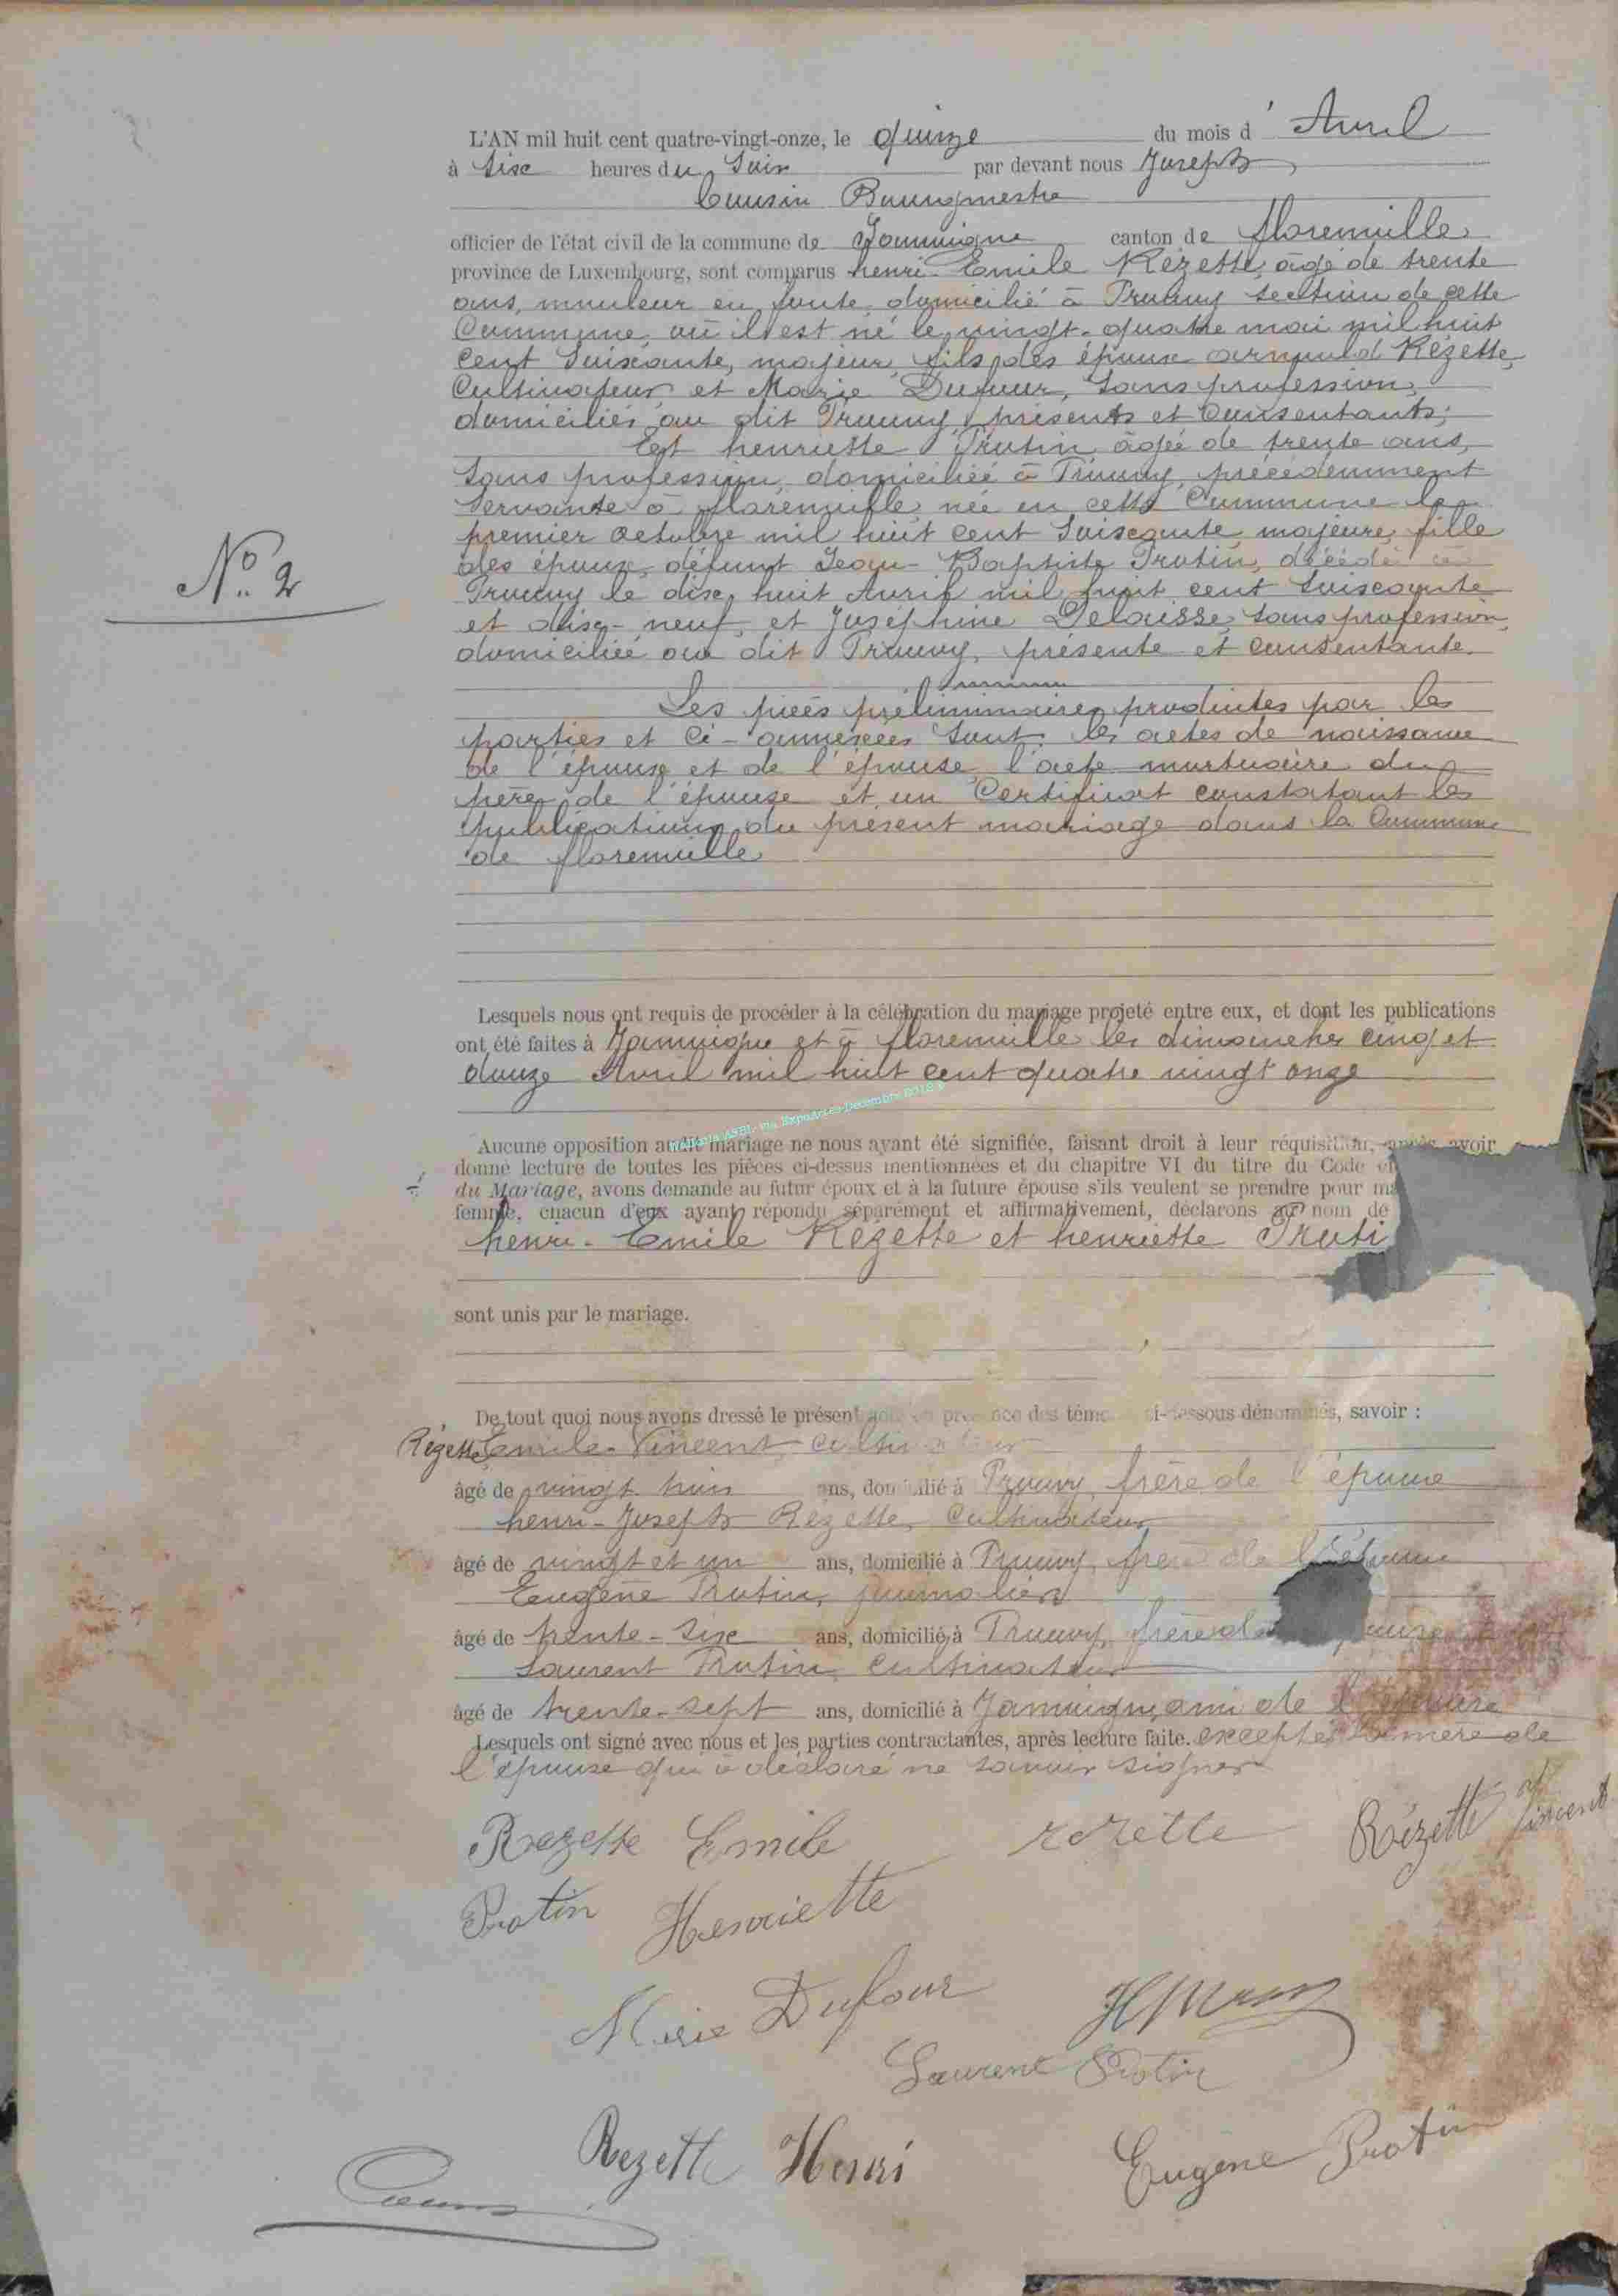 L'AN mil huit cent quatre-vingt-onze, le quinze du mois d' Avril
à six heures du Soir par devant nous Joseph
Cousin Bourgmestre
officier de l'état civil de la commune de Jamoigne canton de florenville
province de Luxembourg, sont comparus henri-Emile Rézette, âgé de trente
ans, mouleur en fonte domicilié à Prouvy section de cette
Commune, où il est né le vingt-quatre mai mil huit
cent soixante, majeur, fils des époux arnould Rézette,
Cultivateur et Marie Dufour, sans profession,
domiciliés au dit Prouvy, présents et consentants;
Et henriette Protin âgée de trente ans,
sans profession domiciliée à Prouvy, précédemment
servante à florenville née en cette Commune le
premier octobre mil huit cent soixante, majeure, fille
des époux, défunt Jean-Baptiste Protin, décédé à
Prouvy le dix huit Avril mil huit cent soixante
et dix-neuf, et Joséphine Delaisse, sans profession,
domiciliée au dit Prouvy, présente et consentante.
N° 2
Les pièces préliminaires produites par les
parties et ci-annexées sont: les actes de naissance
de l'époux et de l'épouse, l'acte mortuaire du
père de l'épouse et un Certificat constatant les
publications du présent mariage dans la Commune
de florenville
Lesquels nous ont requis de procéder à la célébration du mariage projeté entre eux, et dont les publications
ont été faites à Jamoigne et à florenville les dimanches cinq et
douze Avril mil huit cent quatre vingt onze
Aucune opposition audit mariage ne nous ayant été signifiée, faisant droit à leur réquisition, après avoir
donné lecture de toutes les pièces ci-dessus mentionnées et du chapitre VI du titre du Code
du Mariage, avons demandé au futur époux et à la future épouse s'ils veulent se prendre pour
femme, chacun d'eux ayant répondu séparément et affirmativement, déclarons au nom de
henri-Emile Rézette et henriette Proti
sont unis par le mariage.
De tout quoi nous avons dressé le présent acte en présence des témoins ci-dessous dénommés, savoir :
Rézette Emile-Vincent, cultivateur
âgé de vingt trois ans, domicilié à Prouvy, frère de l'époux
henri-Joseph Rézette, Cultivateur
âgé de vingt et un ans, domicilié à Prouvy, frère de l'époux
Eugène Protin, journalier
âgé de trente-six ans, domicilié à Prouvy, frère de
Laurent Protin, Cultivateur
âgé de trente-sept ans, domicilié à Jamoigne, ami de l'épouse
Lesquels ont signé avec nous et les parties contractantes, après lecture faite. excepté la mère de
l'épouse qui a déclaré ne savoir signer
Rezette Emile rézette Rézette Vincent
Protin Henriette
Marie Dufour
Laurent Protin
Rezette Henri Eugène Protin
Cousin